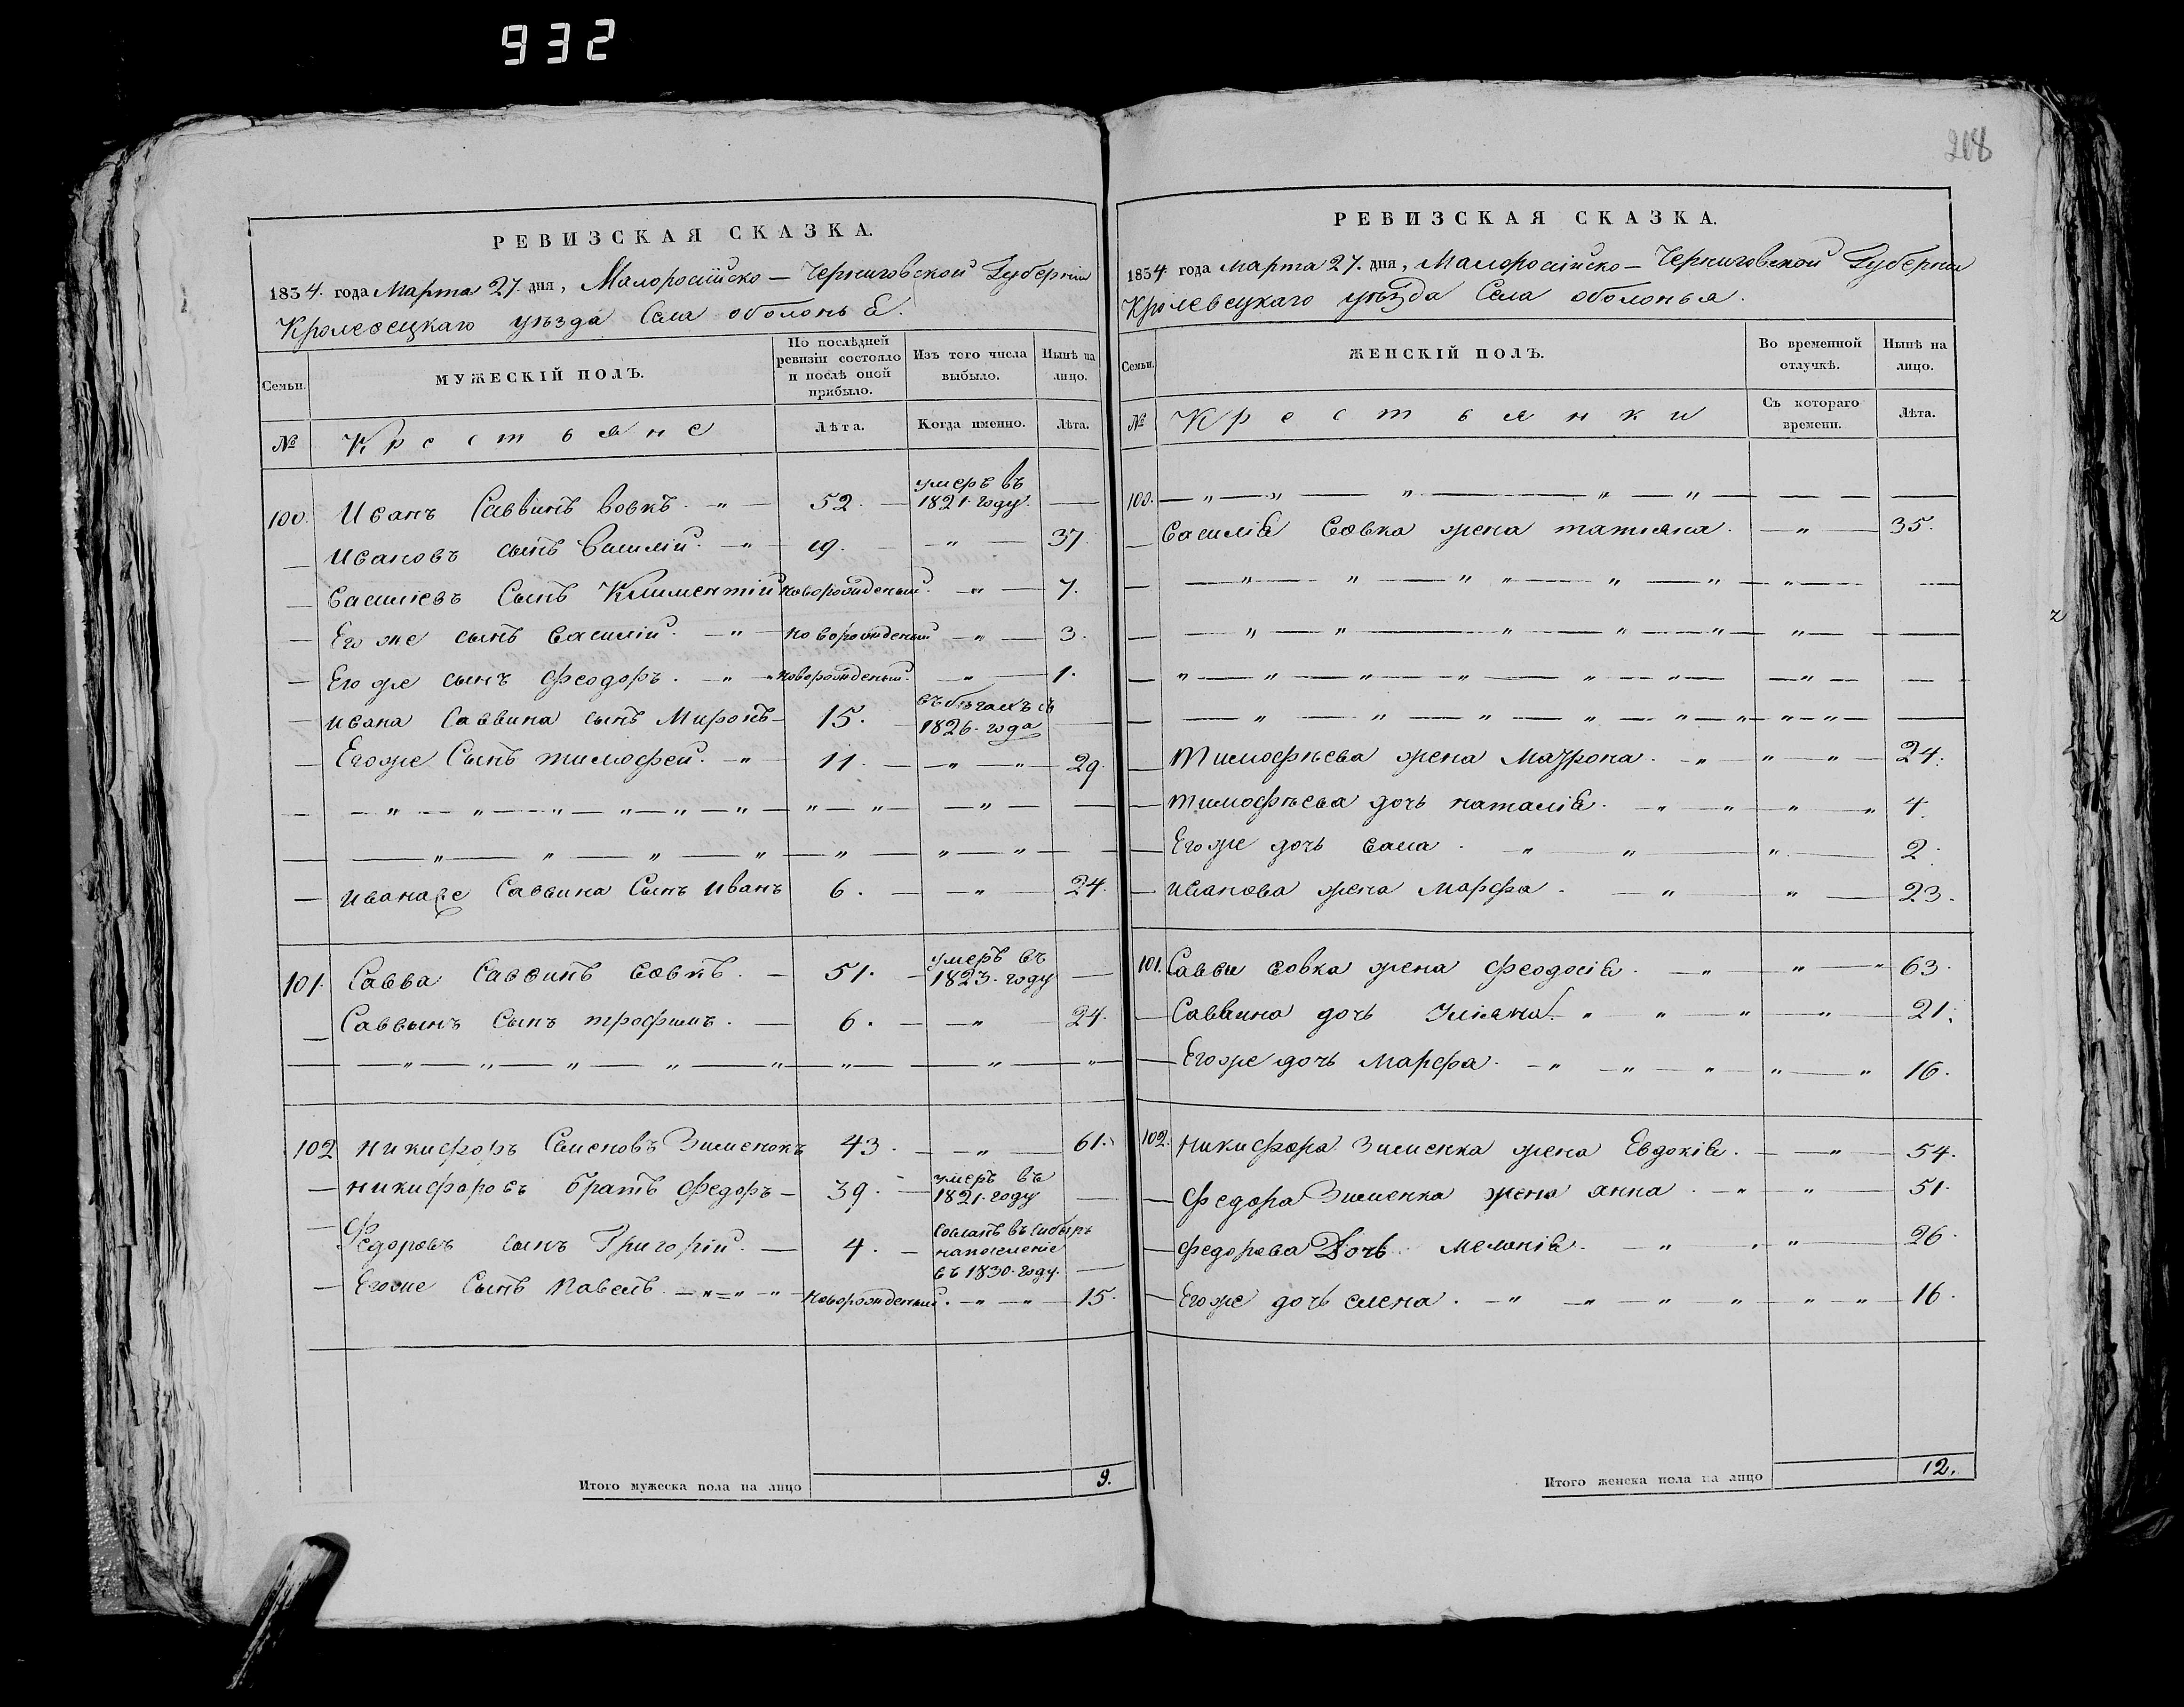 932
208
РЕВИЗСКАЯ СКАЗКА.
1834. года Марта 27. дня, Малоросiйско — Черниговской Губернiи
Кролевецкаго уѣзда Села оболонья.
Семьи.
МУЖЕСКІЙ ПОЛЪ.
По послѣдней ревизіи состояло и послѣ оной прибыло.
Изъ того числа выбыло.
Нынѣ на лицо.
№
Крестьяне
Лѣта.
Когда именно.
Лѣта.
100. Иванъ Саввинъ вовкъ. 52. умеръ въ 1821. году.
Ивановъ сынъ Василiй. 19. 37.
Васильевъ Сынъ Климентiй новорожденый. 7.
Его же сынъ Василiй. новорожденый 3.
Его же сынъ Феодоръ. новорожденый. 1.
Ивана Саввина сынъ Миронъ 15. въ бѣгахъ съ 1826. года
Его же Сынъ тимофей. 11. 29.
Ивана же Саввина Сынъ Иванъ 6. 24.
101. Савва Саввинъ вовкъ. 51. умеръ въ 1823. году
Саввынъ Сынъ трофимъ. 6. 24.
102 Никифоръ Семеновъ Зименокъ 43. 61.
Никифоровъ братъ Федоръ 39. умеръ въ 1821. году
Федоровъ сынъ Григорiй. 4. сосланъ въ Сибирь на поселенiе въ 1830. году.
Его же Сынъ Павелъ. новорожденый. 15.
Итого мужеска пола на лицо 9.
РЕВИЗСКАЯ СКАЗКА.
1834. года марта 27. дня, Малоросiйско — Черниговской Губернiи
Кролевецкаго уѣзда Села оболонья.
Семьи.
ЖЕНСКІЙ ПОЛЪ.
Во временной отлучкѣ.
Нынѣ на лицо.
№
Крестьянки
Съ котораго времени.
Лѣта.
100.
Василiя вовка жена татiяна. 35.
Тимофѣева жена Маѵрона. 24.
тимофѣева дочь наталiя. 4.
Его же дочь васа. 2.
Иванова жена марфа. 23.
101. Саввы вовка жена Феодосiя. 63.
Саввина дочь Улiяна. 21.
Его же дочь Марфа. 16.
102. Никифора Зименка жена Евдокiя. 54.
Федора Зименка жена анна. 51.
Федорова Дочь меланiя. 26.
Его же дочь елена. 16.
Итого женска пола на лицо 12.